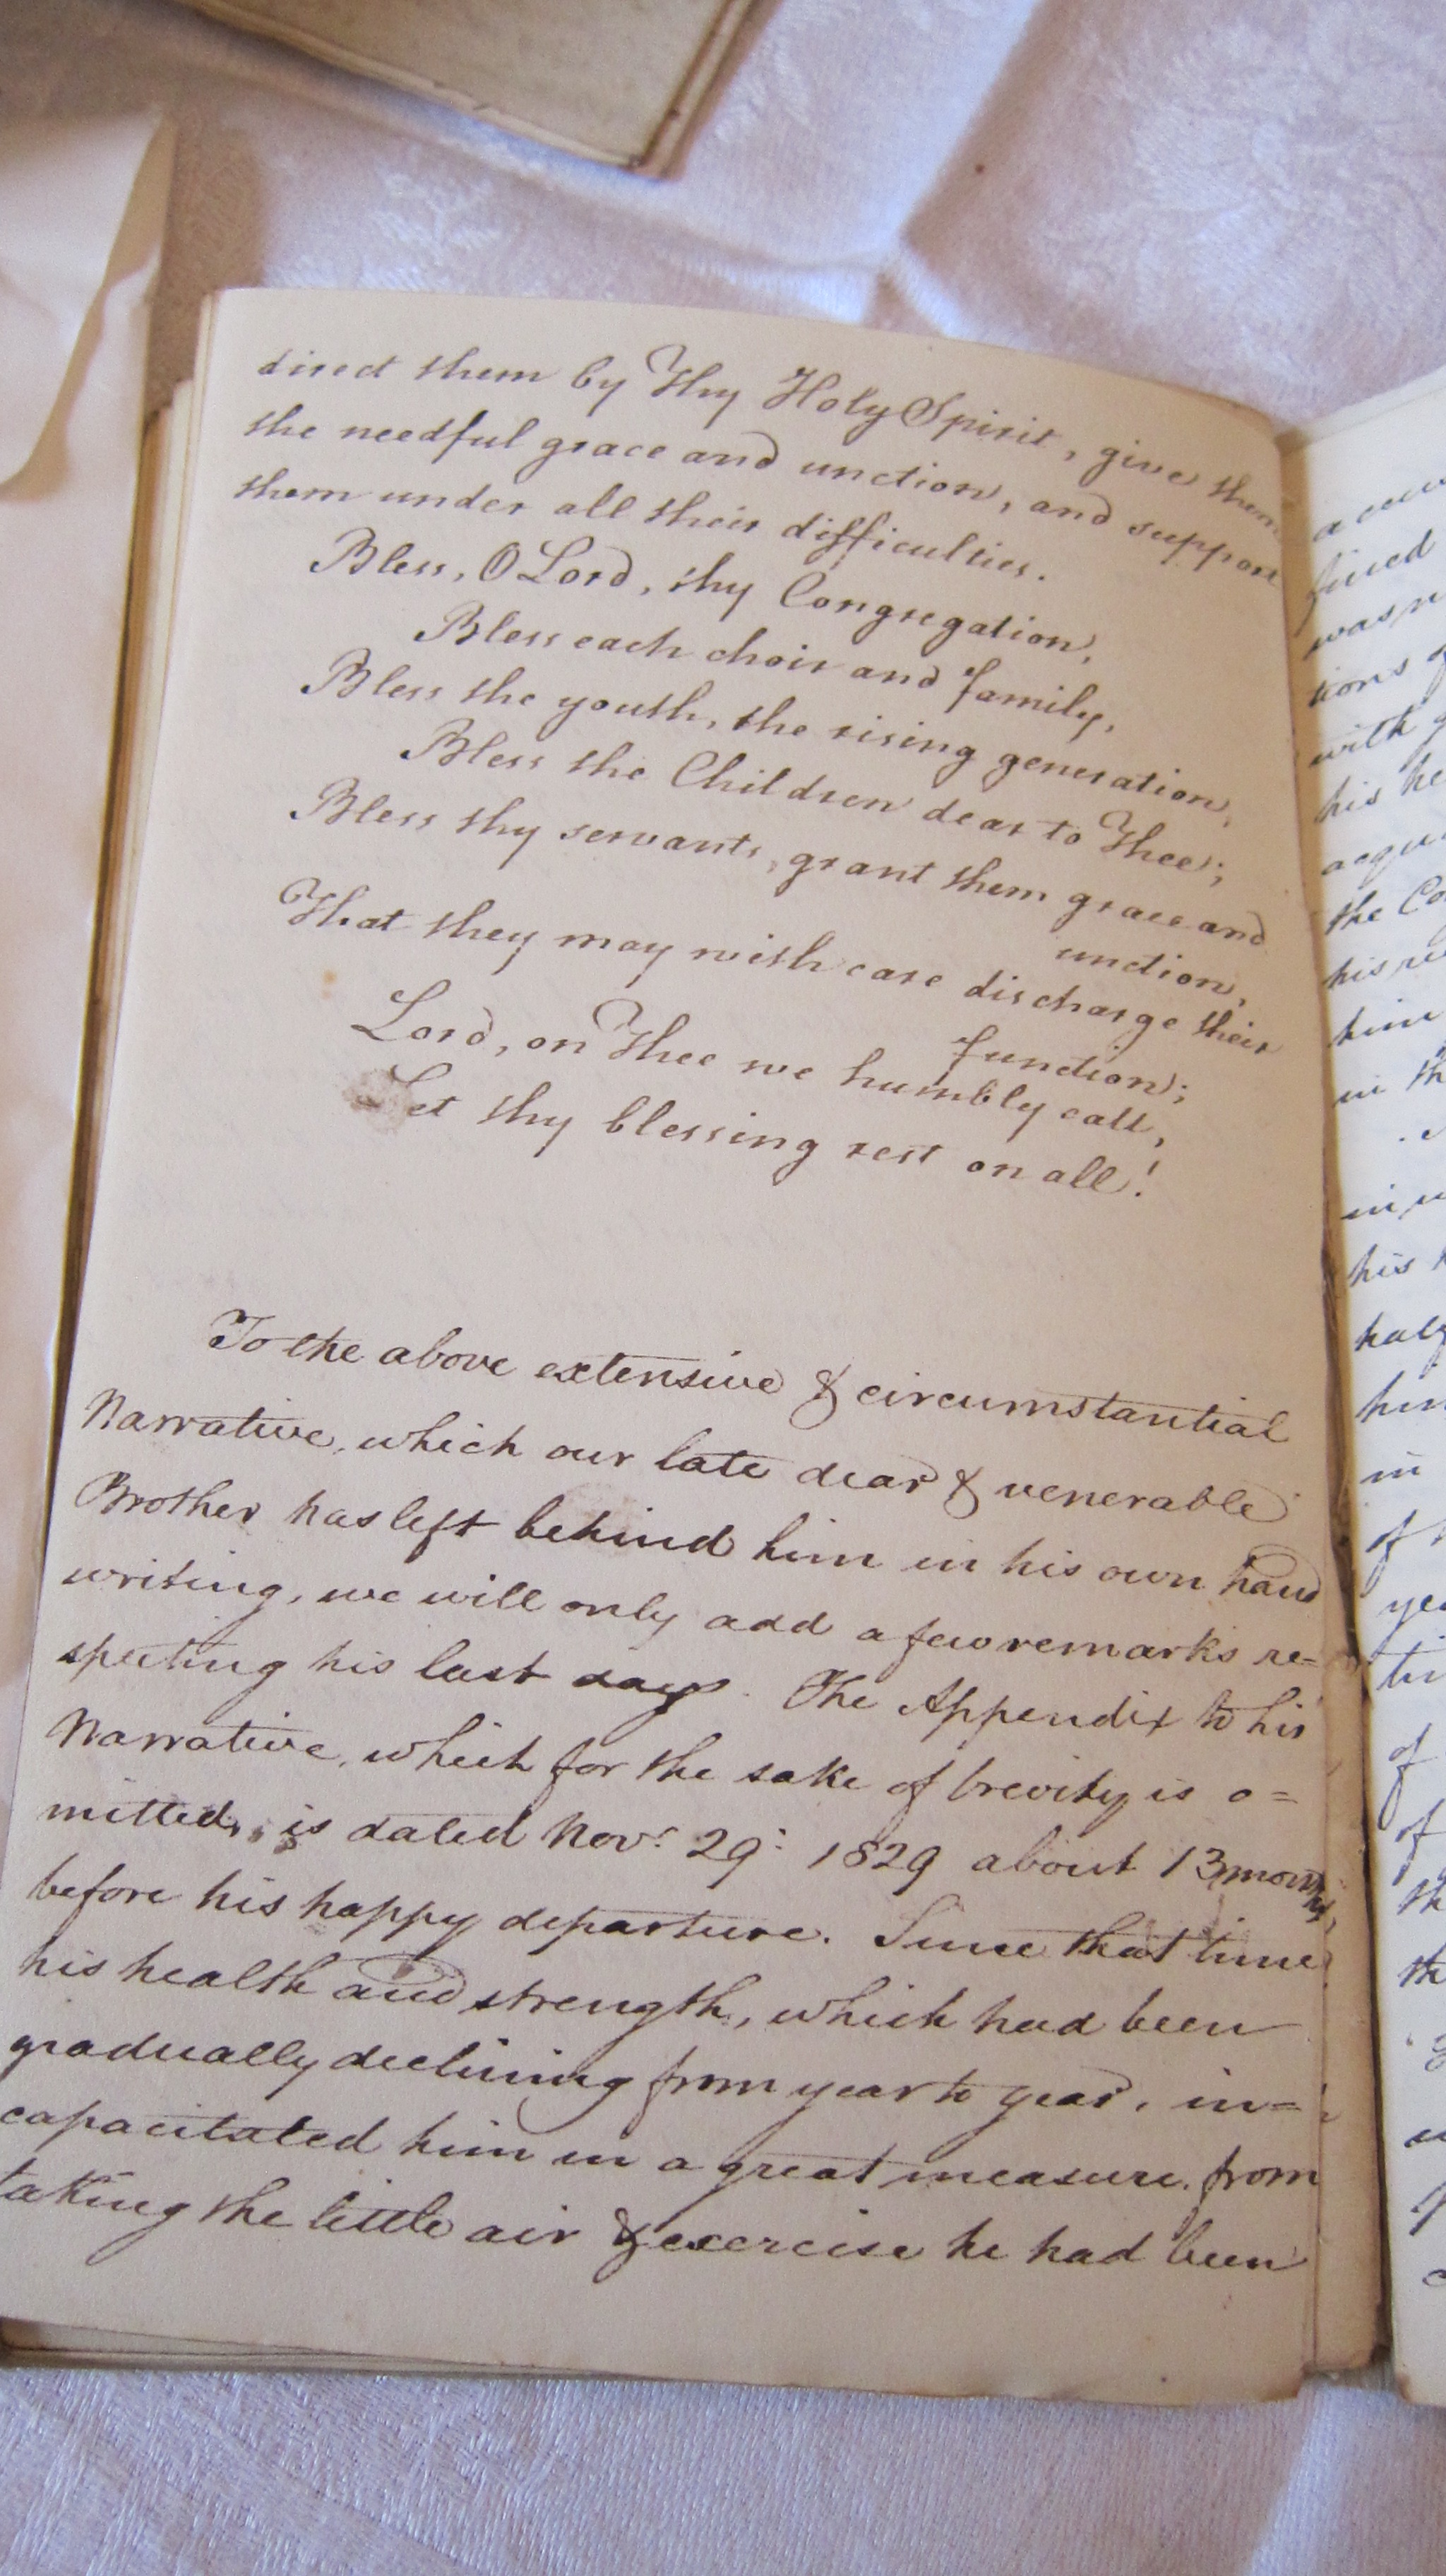 direct them by Thy Holy Spirit, give them
the needful grace and unction, and support
them under all their difficulties.
Bless, O Lord, thy Congregation,
Bless each choir and family,
Bless the youth, the rising generation,
Bless the Children dear to Thee;
Bless thy servants, grant them grace and
unction,
That they may with care discharge their
function;
Lord, on Thee we humbly call,
Let thy blessing rest on all!
To the above extensive & circumstantial
Narrative, which our late dear & venerable
Brother has left behind him in his own hand
writing, we will only add a few remarks re=
specting his last days. The Appendix to his
Narrative, which for the sake of brevity is o=
mitted, is dated Nov.r 29: 1829 about 13 months,
before his happy departure. Since that time
his health and strength, which had been
gradually declining from year to year, in=
capacitated him in a great measure, from
taking the little air & exercise he had been
fined
was n
tions of
with g
his he
acqu
the Co
his re
him
in th
in u
his
him
in
of
of
of